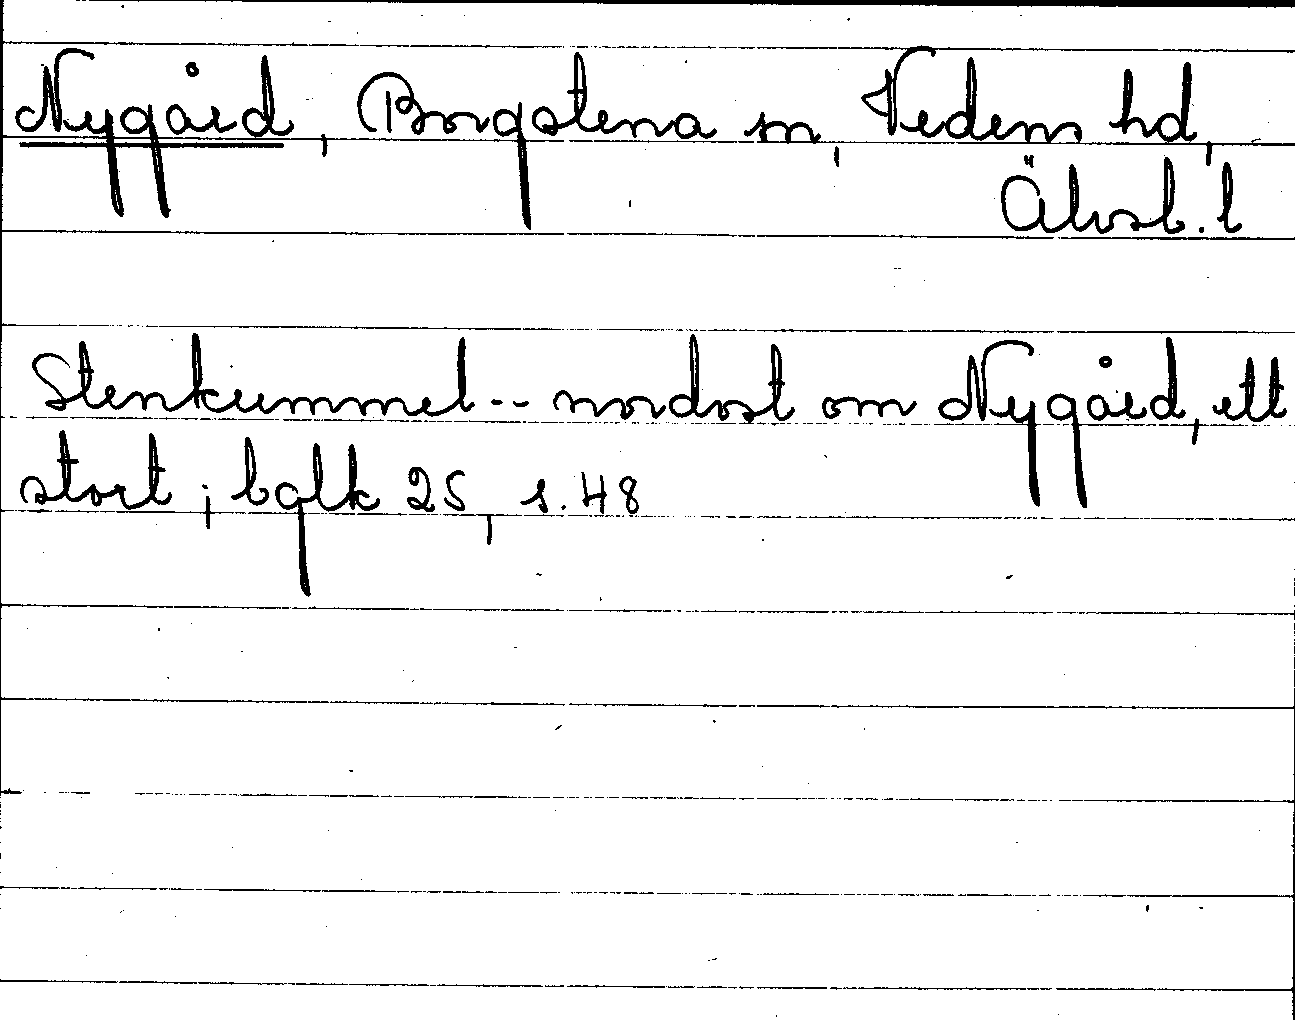 Nygård, Borgstena sn, Vedens hd,
Älvsb. l
Stenkummel -- nordost om Nygård, ett
stort; bglk 25, s. 48